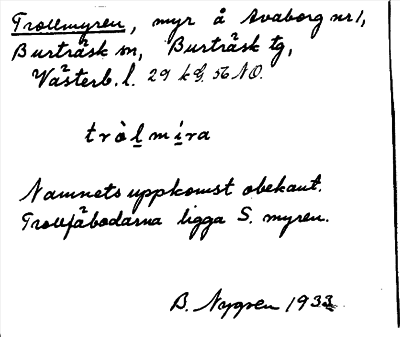 Trollmyren, myr å Avaborg nr 1,
Burträsk sn, Burträsk tg,
Västerb. l. 29 k G. 56 NO.
tròlmíra
Namnets uppkomst obekant.
Trollfäbodarna ligga S. myren.
B. Nygren 1933